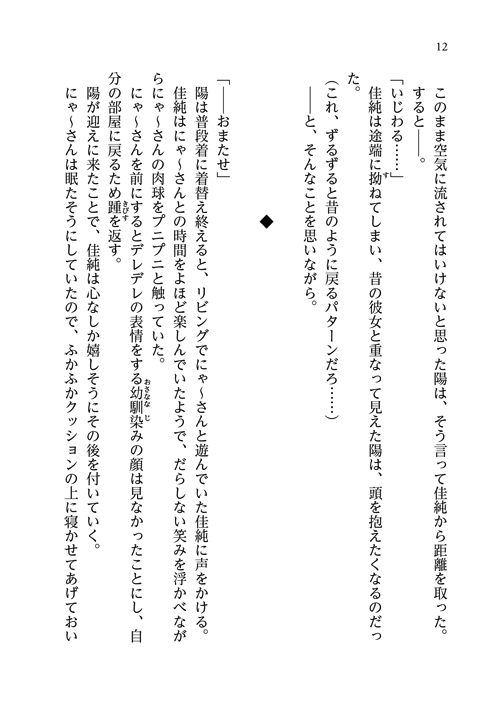 12
このまま空気に流されてはいけないと思った陽は、そう言って佳純から距離を取った。
すると――。
「いじわる……」
佳純は途端に拗ねてしまい、昔の彼女と重なって見えた陽は、頭を抱えたくなるのだっ
た。
（これ、ずるずると昔のように戻るパターンだろ……）
――と、そんなことを思いながら。
◆
「――おまたせ」
陽は普段着に着替え終えると、リビングでにゃ～さんと遊んでいた佳純に声をかける。
佳純はにゃ～さんとの時間をよほど楽しんでいたようで、だらしない笑みを浮かべなが
らにゃ～さんの肉球をプニプニと触っていた。
にゃ～さんを前にするとデレデレの表情をする幼馴染みの顔は見なかったことにし、自
分の部屋に戻るため踵を返す。
陽が迎えに来たことで、佳純は心なしか嬉しそうにその後を付いていく。
にゃ～さんは眠たそうにしていたので、ふかふかクッションの上に寝かせてあげておい